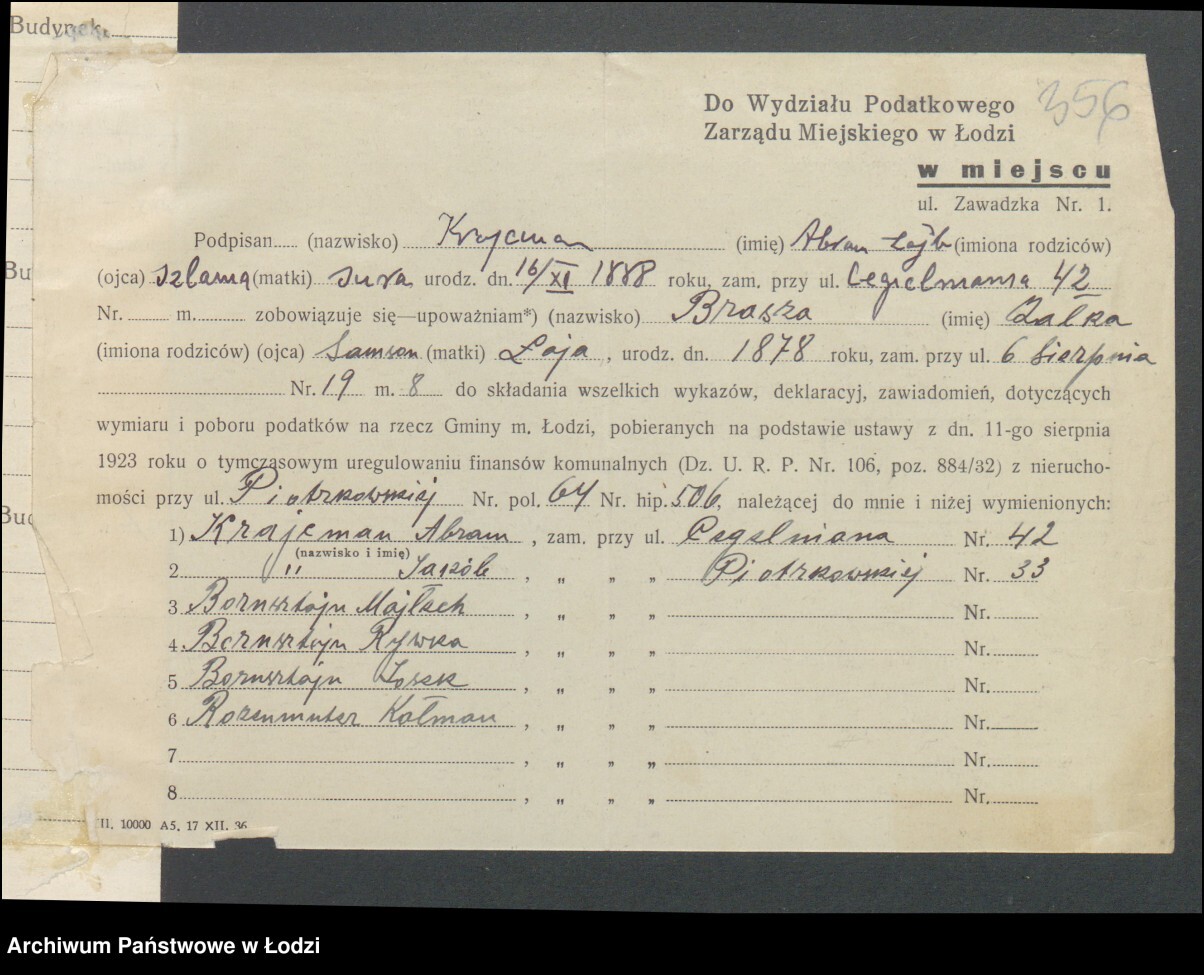 Budynek
356
Do Wydziału Podatkowego
Zarządu Miejskiego w Łodzi
w miejscu
ul. Zawadzka Nr. 1.
Podpisan (nazwisko) Krajcman (imię) Abram Łajb (imiona rodziców)
(ojca) Szlama (matki) Sura urodz. dn. 16/XI 1888 roku, zam. przy ul. Cegielniana 42
Nr. m. zobowiązuje się—upoważniam*) (nazwisko) Brasza (imię) Załka
(imiona rodziców) (ojca) Samson (matki) Łaja, urodz. dn. 1878 roku, zam. przy ul. 6 Sierpnia
Nr. 19 m. 8 do składania wszelkich wykazów, deklaracyj, zawiadomień, dotyczących
wymiaru i poboru podatków na rzecz Gminy m. Łodzi, pobieranych na podstawie ustawy z dn. 11-go sierpnia
1923 roku o tymczasowym uregulowaniu finansów komunalnych (Dz. U. R. P. Nr. 106, poz. 884/32) z nierucho-
mości przy ul. Piotrkowskiej Nr. pol. 64 Nr. hip. 506, należącej do mnie i niżej wymienionych:
1) Krajcman Abram, zam. przy ul. Cegelniana Nr. 42
(nazwisko i imię)
2 " Jakób, „ „ „ Piotrkowskiej Nr. 33
3 Bornsztajn Majłech, „ „ „ Nr.
4. Bornsztajn Rywka, „ „ „ Nr.
5 Bornsztajn Josek, „ „ „ Nr.
6 Rozenmuter Kałman, „ „ „ Nr.
7, „ „ „ Nr.
8, „ „ „ Nr.
II. 10000 A5. 17 XII. 36
Bu
Bud
Archiwum Państwowe w Łodzi